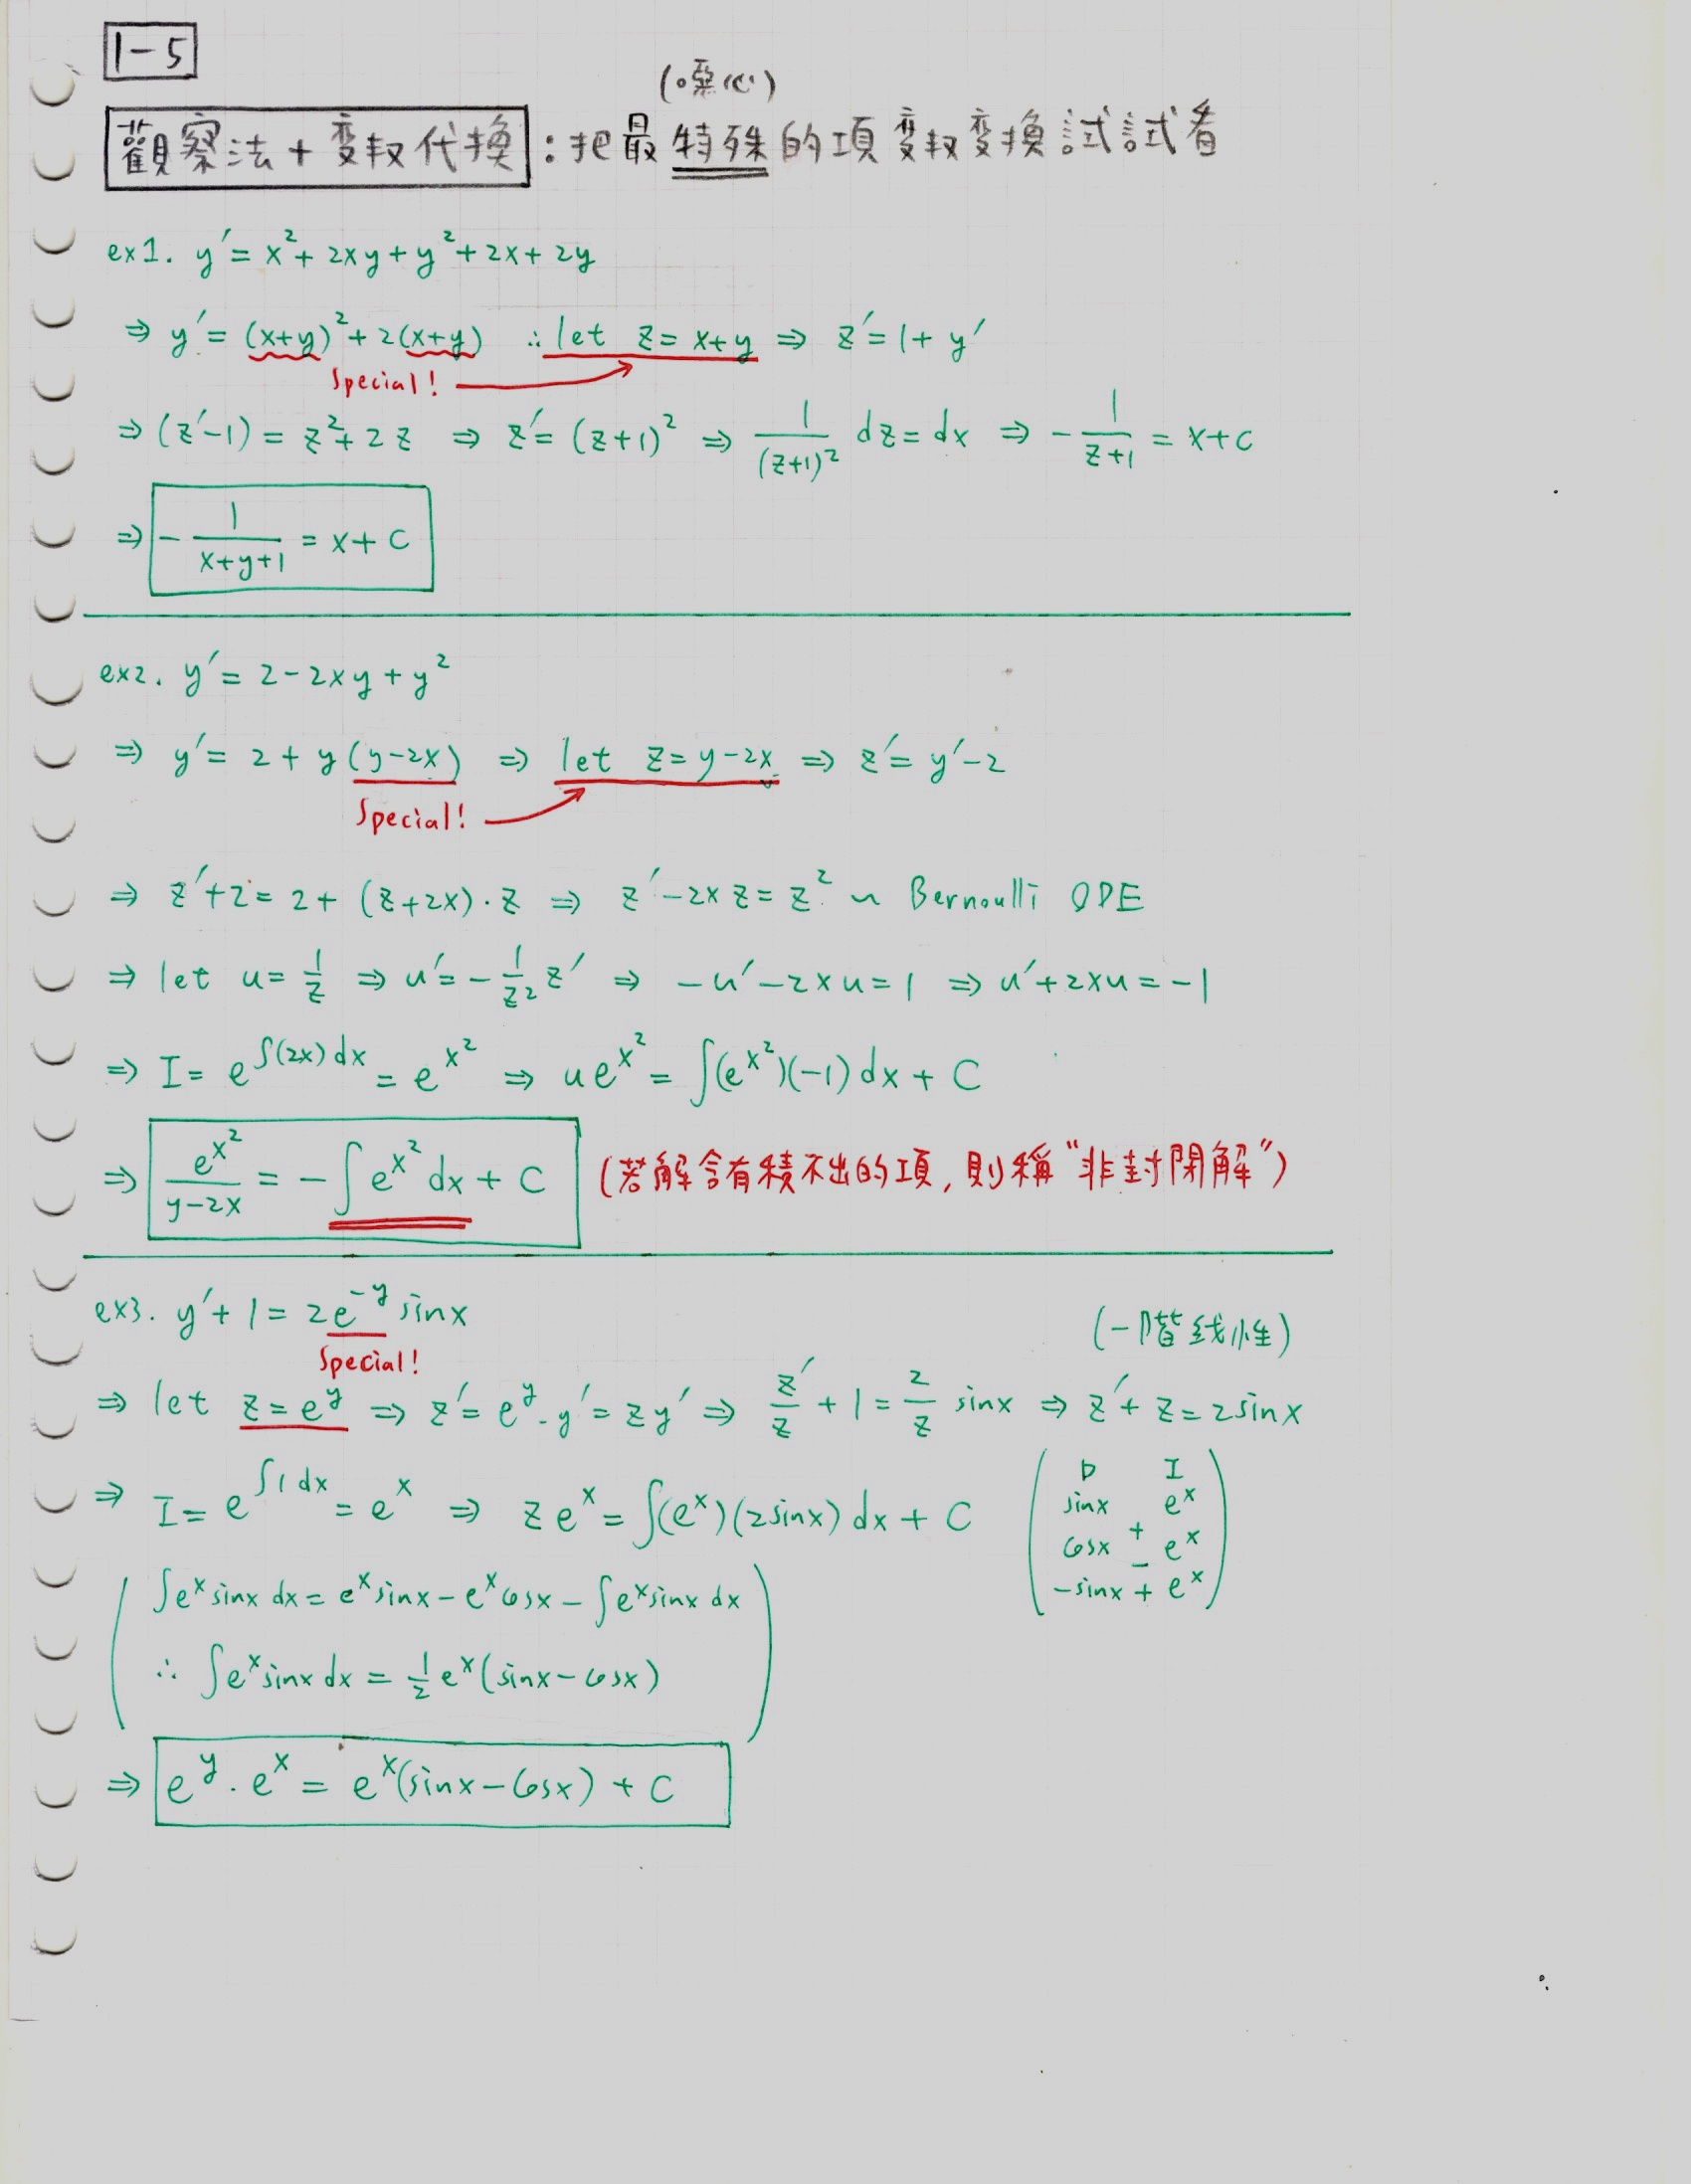 1-5
(噁心)
觀察法+变权代換:把最特殊的項变权变換試試看
ex1. y′ = x² + 2xy + y² + 2x + 2y
⇒ y′ = (x+y)² + 2(x+y) ∴ let z = x+y ⇒ z′ = 1 + y′
Special!
⇒ (z′-1) = z² + 2z ⇒ z′ = (z+1)² ⇒ 1/(z+1)² dz = dx ⇒ -1/(z+1) = x+c
⇒ -1/(x+y+1) = x + c
ex2. y′ = 2 - 2xy + y²
⇒ y′ = 2 + y(y-2x) ⇒ let z = y-2x ⇒ z′ = y′-2
Special!
⇒ z′+2 = 2 + (z+2x)·z ⇒ z′ - 2xz = z² ~ Bernoulli ODE
⇒ let u = 1/z ⇒ u′ = -1/z² z′ ⇒ -u′ - 2xu = 1 ⇒ u′ + 2xu = -1
⇒ I = e^∫(2x)dx = e^x² ⇒ ue^x² = ∫(e^x²)(-1)dx + C
⇒ e^x²/(y-2x) = -∫e^x² dx + C (若解含有積不出的項,則稱“非封閉解”)
ex3. y′ + 1 = 2e^-y sinx
Special!
(一階线性)
⇒ let z = e^y ⇒ z′ = e^y·y′ = zy′ ⇒ z′/z + 1 = 2/z sinx ⇒ z′ + z = 2sinx
⇒ I = e^∫1dx = e^x ⇒ ze^x = ∫(e^x)(2sinx)dx + C
D I
sinx e^x
cosx + e^x
-sinx - + e^x
∫e^x sinx dx = e^x sinx - e^x cosx - ∫e^x sinx dx
∴ ∫e^x sinx dx = 1/2 e^x(sinx - cosx)
⇒ e^y · e^x = e^x(sinx - cosx) + C